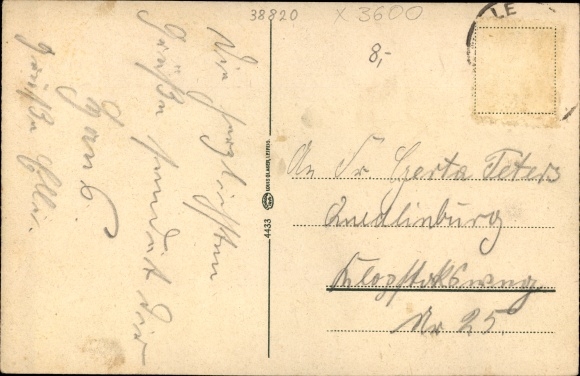 38820
X 3600
LE
8,-
Die herzlichsten
Grüße sendet dir
Hans.
Grüße Elli.
4433
LOUIS GLASER, LEIPZIG.
An Fr Gerta Peters
Quedlinburg
Klopstoksweg
Nr 25.